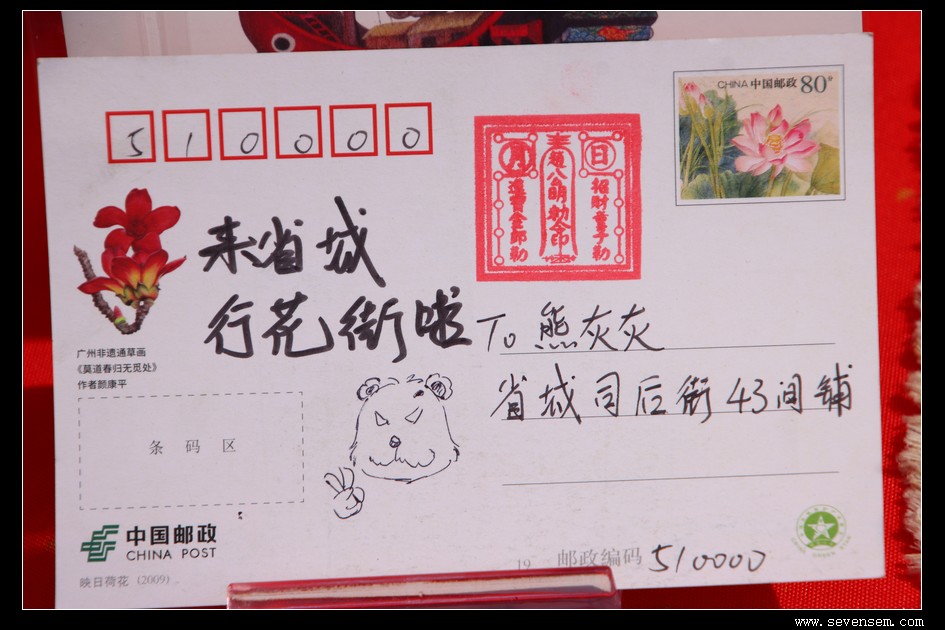 CHINA 中国邮政 80分
510000
月 日
来省城
行花街啦
To 熊灰灰
省城司后街43间铺
广州非遗通草画
《莫道春归无觅处》
作者颜康平
条码区
中国邮政
CHINA POST
映日荷花 (2009)
19 邮政编码 510000
www.sevensem.com